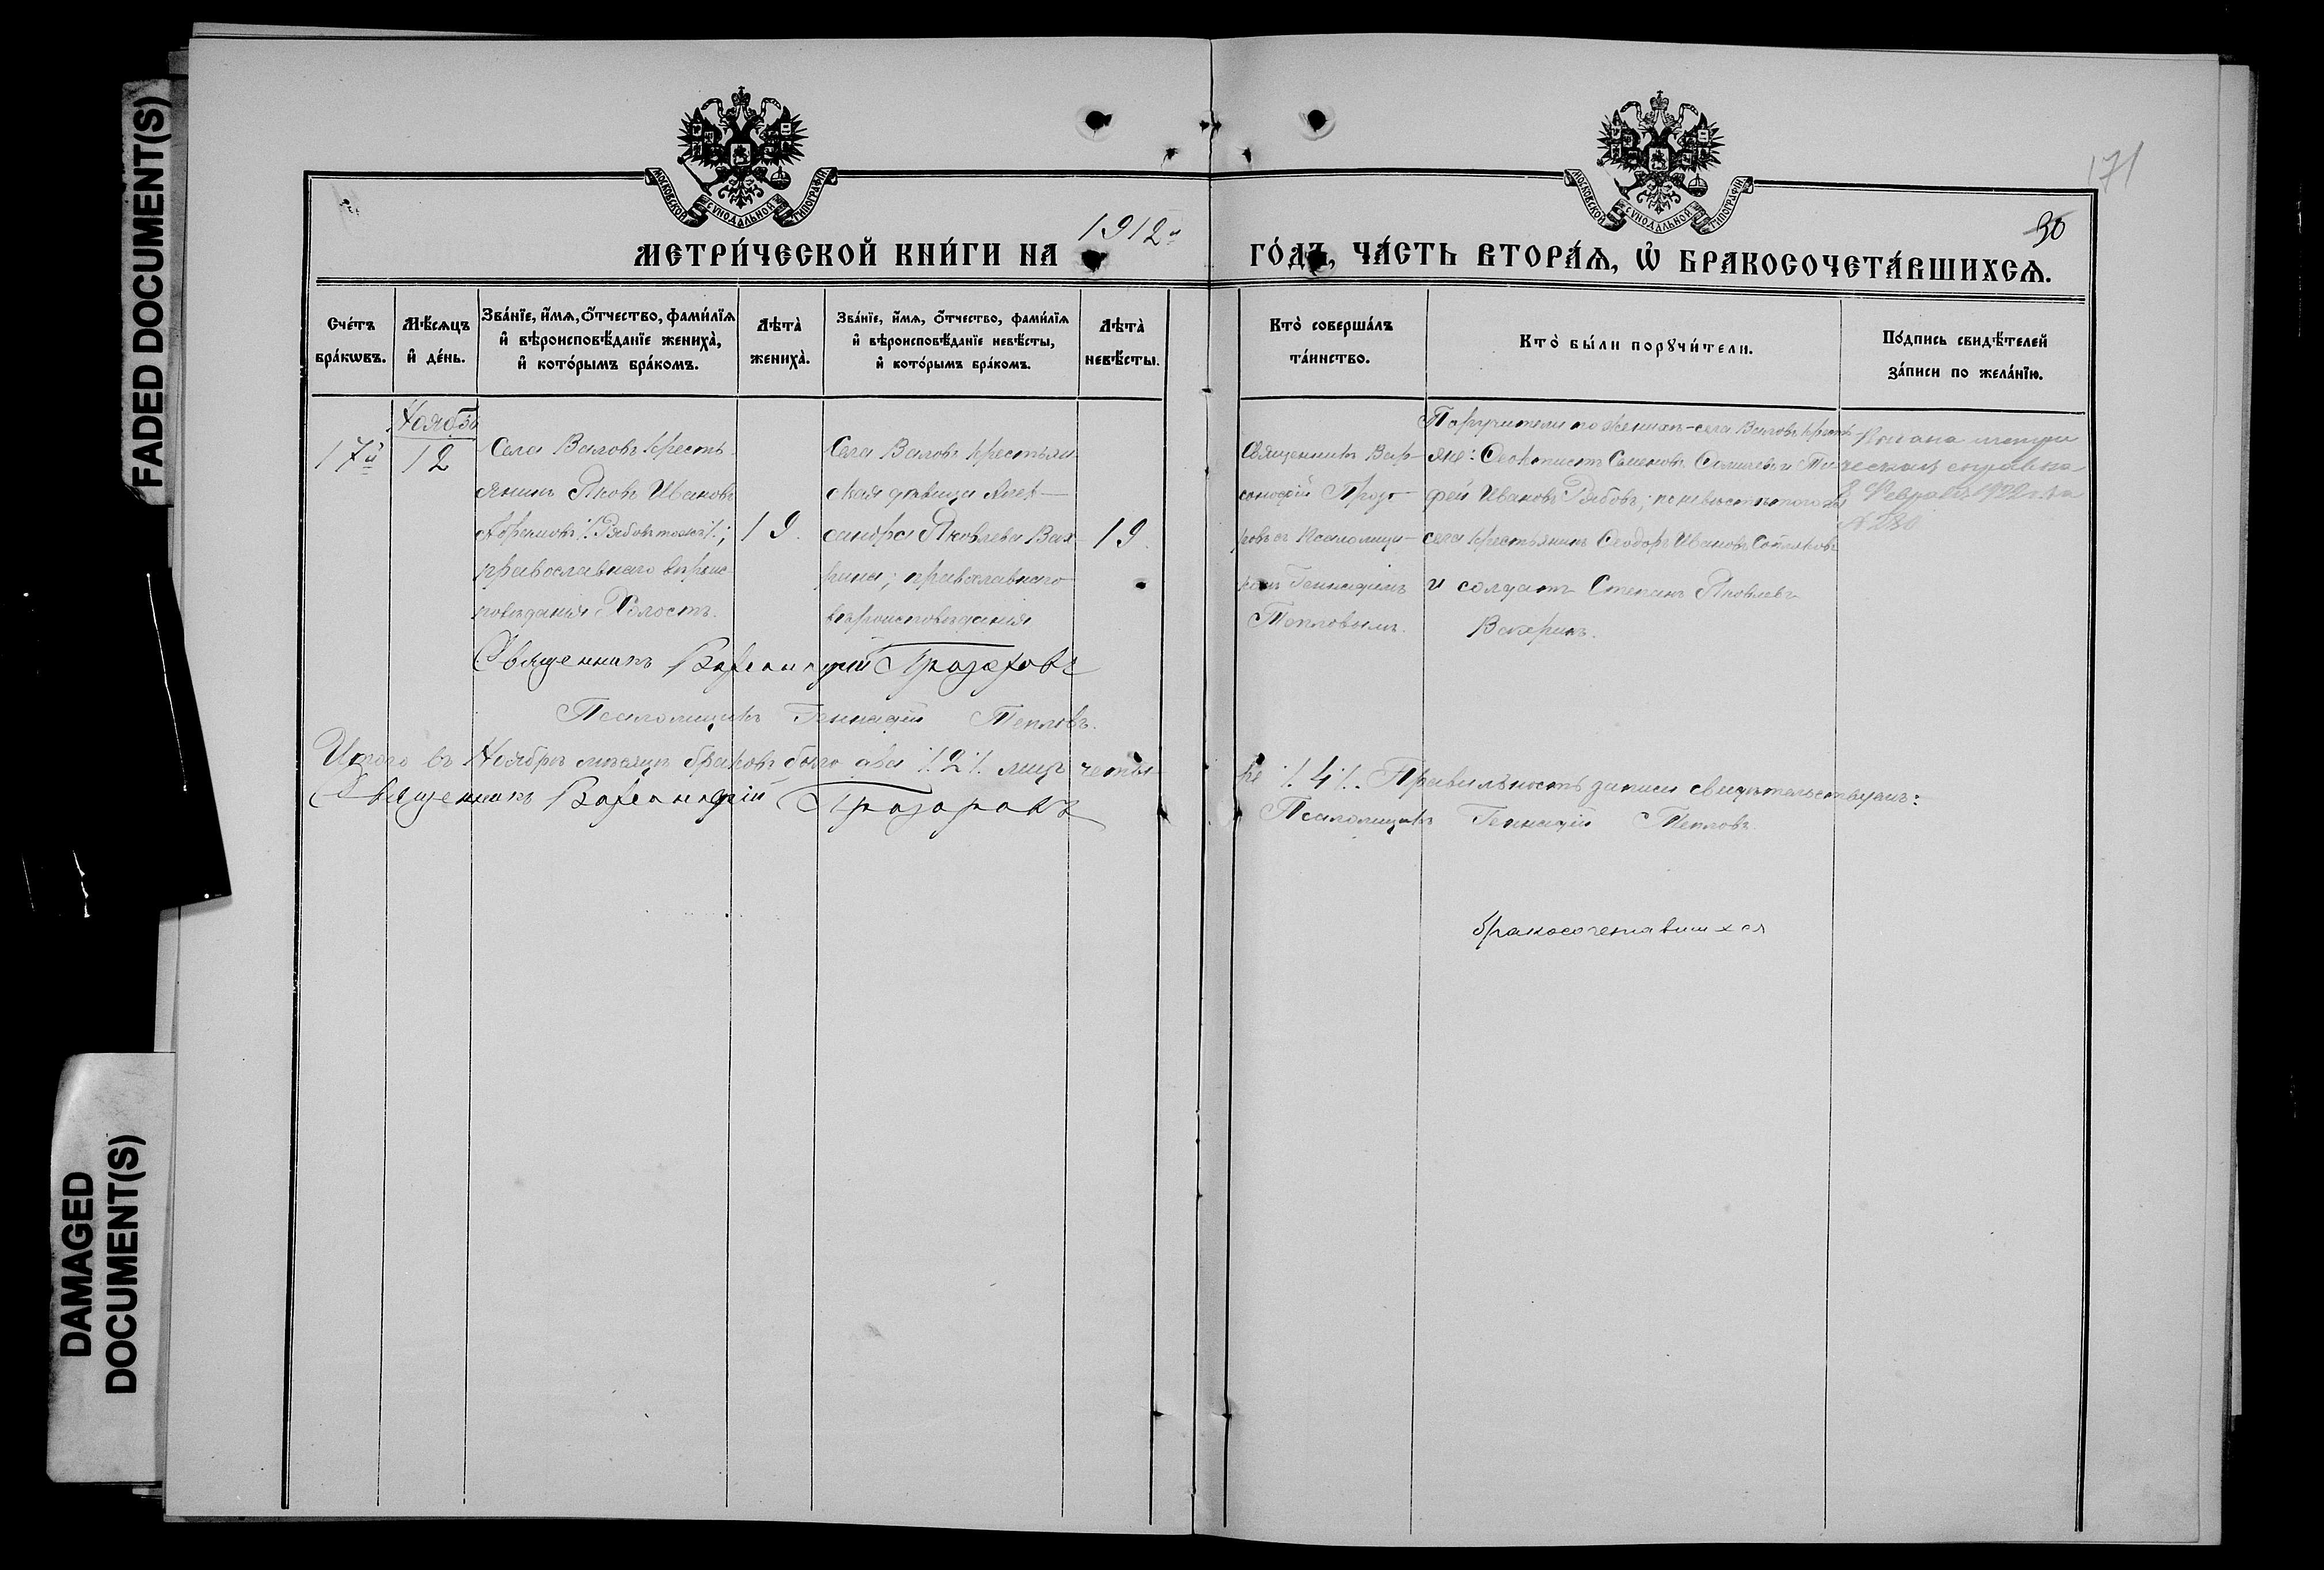 FADED DOCUMENT(S)
DAMAGED
DOCUMENT(S)
МОСКОВСКОЙ СУНОДАЛЬНОЙ ТИПОГРАФІИ
МОСКОВСКОЙ СУНОДАЛЬНОЙ ТИПОГРАФІИ
171
30
МЕТРИ́ЧЕСКОЙ КНИ́ГИ НА 1912й ГО́ДЪ, ЧА́СТЬ ВТОРА́Ѧ, Ѡ҆ БРАКОСОЧЕТА́ВШИХСѦ.
Сче́тъ
бра́кѡвъ.
Мѣ́сѧцъ
и҆ де́нь.
Зва́нїе, и҆́мѧ, о҆́тчество, фами́лїѧ
и҆ вѣроисповѣ́данїе жениха̀,
и҆ кото́рымъ бра́комъ.
Лѣта̀
жениха̀.
Зва́нїе, и҆́мѧ, о҆́тчество, фами́лїѧ
и҆ вѣроисповѣ́данїе невѣ́сты,
и҆ кото́рымъ бра́комъ.
Лѣта̀
невѣ́сты.
Кто̀ соверша́лъ
та́инство.
Кто̀ бы́ли порꙋчи́тели.
По́дпись свидѣ́телей
за́писи по жела́нїю.
17й
Ноябрь
12
Села Валовъ кресть-
янинъ Яковъ Ивановъ
Абрамовъ /Рябовъ тожъ/;
православнаго вѣроис-
повѣданія Холостъ.
19.
Села Валовъ крестьян-
ская дѣвица Алек-
сандра Яковлева Вах-
рина; православнаго
вѣроисповѣданія
19.
Священникъ Вар-
сонофій Прозо-
ровъ съ Псаломщи-
комъ Геннадіемъ
Тепловымъ.
Поручители по женихѣ-села Валовъ кресть-
яне: Ѳеоктистъ Семеновъ и Ти-
фей Ивановъ Рябовъ; по невѣстѣ того же
села крестьянинъ Ѳеодоръ Ивановъ
и солдатъ Степанъ Яковлевъ
Вахринъ.
метри
ческая справка
8 Февраля за
№ 280
Священникъ Варсонофій Прозоровъ
Псаломщикъ Геннадій Тепловъ.
Итого въ Ноябрѣ мѣсяцѣ браковъ было два /2/ лицъ четы-
ре /4/. Правильность записи свидѣтельствуемъ:
Священникъ Варсонофій Прозоровъ
Псаломщикъ Геннадій Тепловъ
бракосочетавшихся